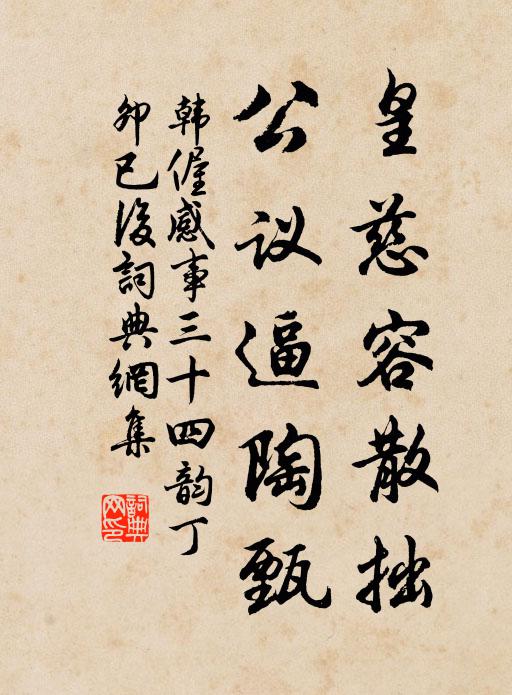 皇慈容散拙
公议逼陶甄
韩偓感事三十四韵丁
卯已後詞典網集
詞典網印